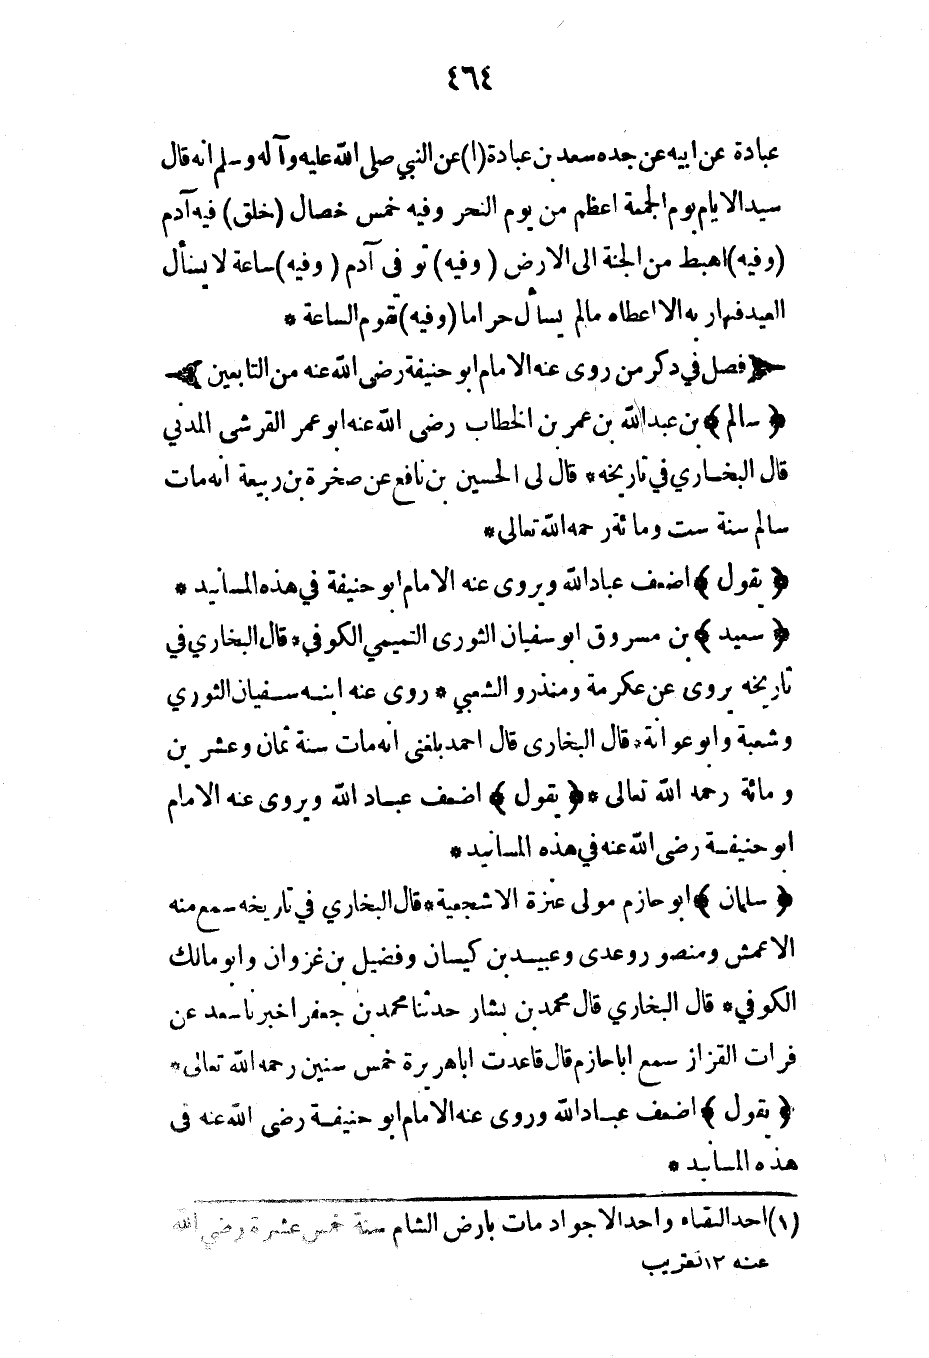 ٤٦٤
عبادة عن ابيه عن جده سعد بن عبادة (١) عن النبي صلى الله عليه وآله وسلم انه قال
سيد الايام يوم الجمعة اعظم من يوم النحر وفيه خمس خصال (خلق) فيه آدم
(وفيه) اهبط من الجنة الى الارض (وفيه) توفى آدم (وفيه) ساعة لا يسأل
العبد فيها ربه الا اعطاه مالم يسأل حراما (وفيه) تقوم الساعة *
﴿فصل في ذكر من روى عنه الامام ابو حنيفة رضى الله عنه من التابعين﴾
﴿ سالم ﴾ بن عبد الله بن عمر بن الخطاب رضى الله عنه ابو عمر القرشى المدني
قال البخاري في تاريخه * قال لى الحسين بن نافع عن صخرة بن ربيعة انه مات
سالم سنة ست ومائة رحمه الله تعالى *
﴿ يقول ﴾ اضعف عباد الله ويروى عنه الامام ابو حنيفة في هذه المسانيد *
﴿ سعيد ﴾ بن مسروق ابو سفيان الثورى التميمي الكوفي * قال البخاري في
تاريخه يروى عن عكرمة ومنذر والشعبي * روى عنه ابنه سفيان الثوري
وشعبة وابو عوانة * قال البخارى قال احمد بلغنى انه مات سنة ثمان وعشرين
ومائة رحمه الله تعالى * ﴿ يقول ﴾ اضعف عباد الله ويروى عنه الامام
ابو حنيفة رضى الله عنه في هذه المسانيد *
﴿ سلمان ﴾ ابو حازم مولى عزة الاشجعية * قال البخاري في تاريخه سمع منه
الاعمش ومنصور وعدى وعبيد بن كيسان وفضيل بن غزوان وابو مالك
الكوفي * قال البخاري قال محمد بن بشار حدثنا محمد بن جعفر اخبرنا سعد عن
فرات القزاز سمع ابا حازم قال قاعدت ابا هريرة خمس سنين رحمه الله تعالى *
﴿ يقول ﴾ اضعف عباد الله وروى عنه الامام ابو حنيفة رضى الله عنه فى
هذه المسانيد *
(١) احد النقباء واحد الاجواد مات بارض الشام سنة خمس عشرة رضي الله
عنه ١٢ تقريب